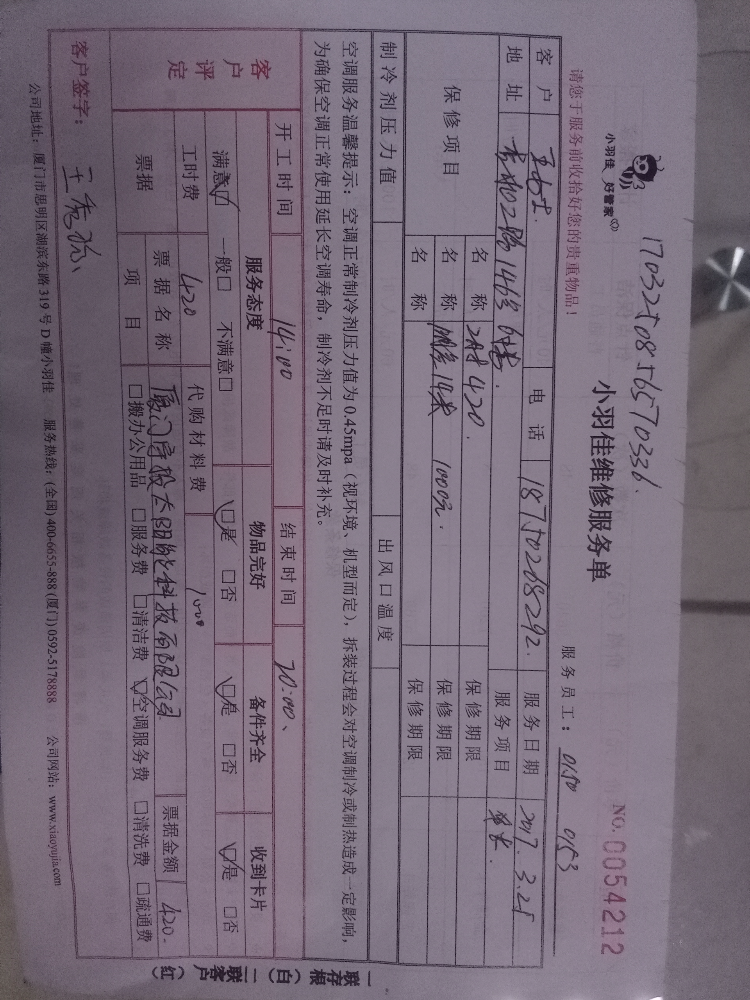 17032508565570336.
小羽佳 好管家
小羽佳维修服务单
NO. 0054212
请您于服务前收拾好您的贵重物品!
服务员工: 0150 0153
客户 王女士. 电话 18750268292. 服务日期 2017.3.25
地址 146号 服务项目
保修项目 名称 420. 保修期限
名称 14米 1000元. 保修期限
名称 保修期限
制冷剂压力值 出风口温度
空调服务温馨提示: 空调正常制冷剂压力值为0.45mpa(视环境、机型而定),拆装过程会对空调制冷或制热造成一定影响,
为确保空调正常使用延长空调寿命,制冷剂不足时请及时补充。
开工时间 14:00 结束时间 20:00、
客户评定 服务态度 物品完好 备件齐全 收到卡片
满意□ 一般□ 不满意□ □是 □否 □是 □否 □是 □否
工时费 420 代购材料费 1000
票据 票据名称 厦门 太阳能科技有限公司 票据金额 420.
项目 □搬办公用品 □服务费 □清洁费 □空调服务费 □清洗费 □疏通费
客户签字: 王
公司地址: 厦门市思明区湖滨东路319号D幢小羽佳 服务热线: (全国) 400-6655-888 (厦门) 0592-5178888 公司网站: www.xiaoyujia.com
一存根(白) 二联客户联(红)